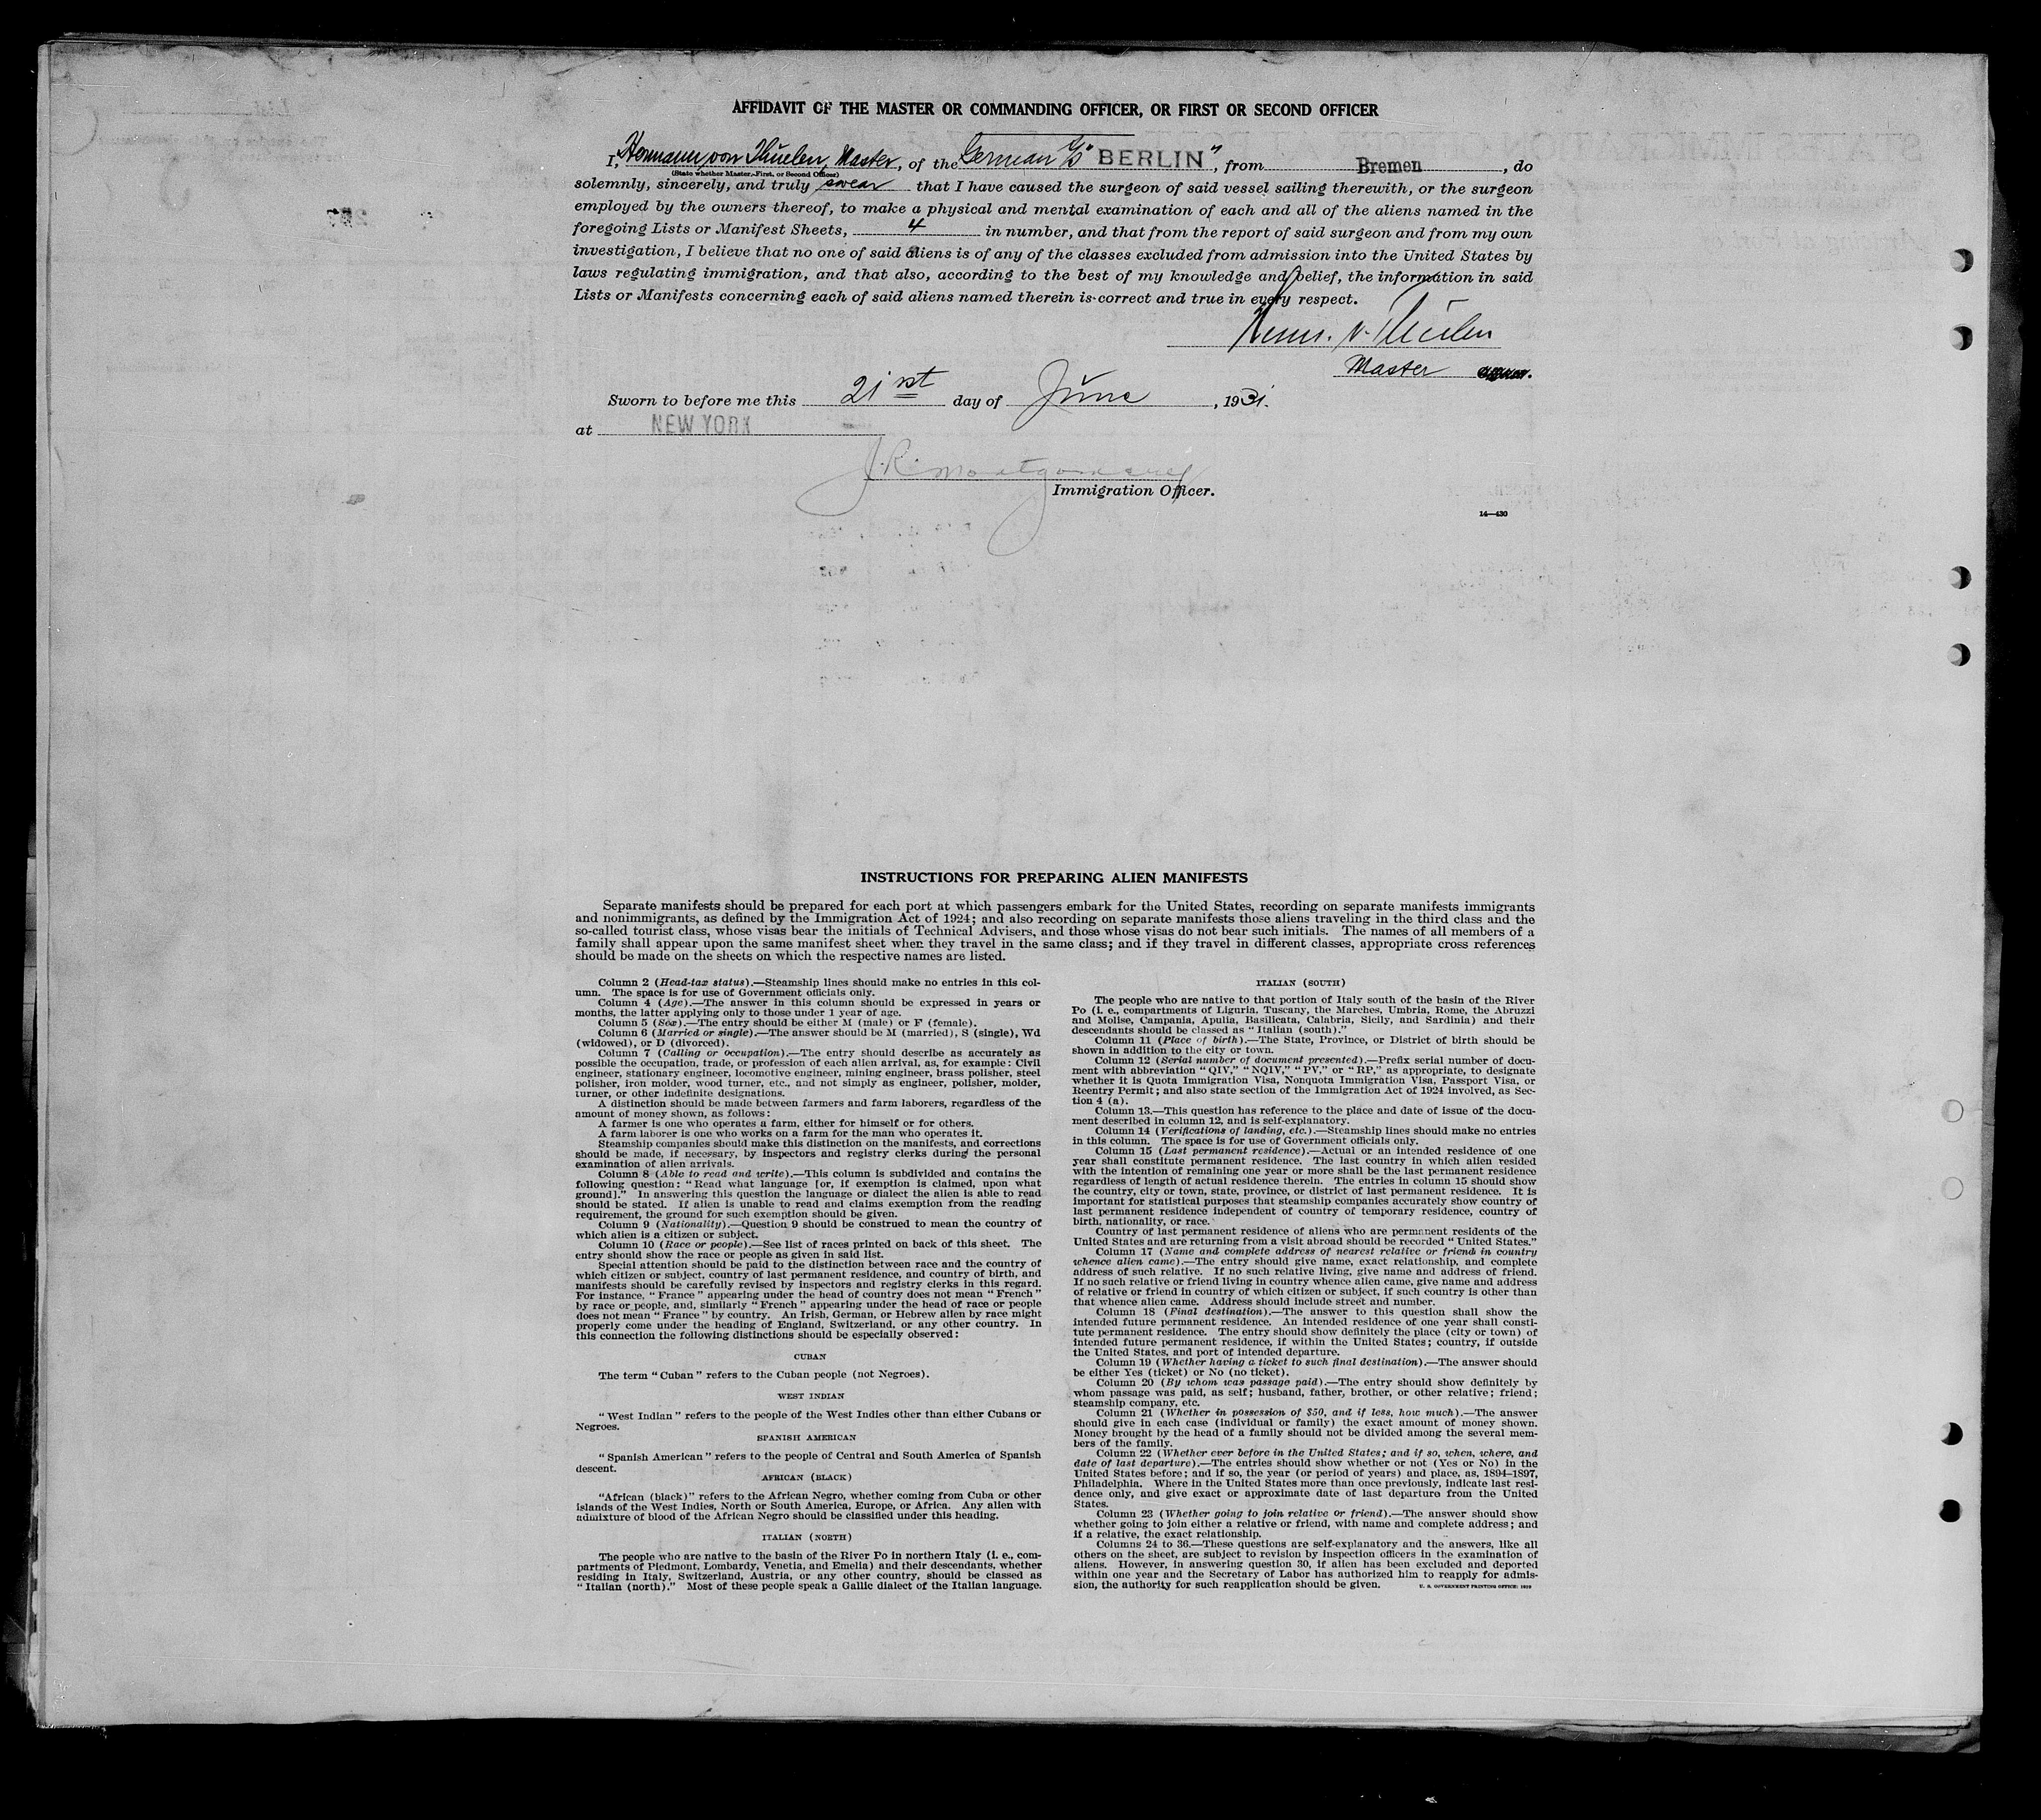 AFFIDAVIT OF THE MASTER OR COMMANDING OFFICER, OR FIRST OR SECOND OFFICER
I, Hermann von Thülen, Master, of the German S/S "BERLIN", from Bremen, do
(State whether Master, First, or Second Officer)
solemnly, sincerely, and truly swear that I have caused the surgeon of said vessel sailing therewith, or the surgeon
employed by the owners thereof, to make a physical and mental examination of each and all of the aliens named in the
foregoing Lists or Manifest Sheets, 4 in number, and that from the report of said surgeon and from my own
investigation, I believe that no one of said aliens is of any of the classes excluded from admission into the United States by
laws regulating immigration, and that also, according to the best of my knowledge and belief, the information in said
Lists or Manifests concerning each of said aliens named therein is correct and true in every respect.
Herm. v. Thülen
Master
Sworn to before me this 21st day of June, 1931.
at NEW YORK
J. R. Montgomery
Immigration Officer.
14—430
INSTRUCTIONS FOR PREPARING ALIEN MANIFESTS
Separate manifests should be prepared for each port at which passengers embark for the United States, recording on separate manifests immigrants
and nonimmigrants, as defined by the Immigration Act of 1924; and also recording on separate manifests those aliens traveling in the third class and the
so-called tourist class, whose visas bear the initials of Technical Advisers, and those whose visas do not bear such initials. The names of all members of a
family shall appear upon the same manifest sheet when they travel in the same class; and if they travel in different classes, appropriate cross references
should be made on the sheets on which the respective names are listed.
Column 2 (Head-tax status).—Steamship lines should make no entries in this col-
umn. The space is for use of Government officials only.
Column 4 (Age).—The answer in this column should be expressed in years or
months, the latter applying only to those under 1 year of age.
Column 5 (Sex).—The entry should be either M (male) or F (female).
Column 6 (Married or single).—The answer should be M (married), S (single), Wd
(widowed), or D (divorced).
Column 7 (Calling or occupation).—The entry should describe as accurately as
possible the occupation, trade, or profession of each alien arrival, as, for example: Civil
engineer, stationary engineer, locomotive engineer, mining engineer, brass polisher, steel
polisher, iron molder, wood turner, etc., and not simply as engineer, polisher, molder,
turner, or other indefinite designations.
A distinction should be made between farmers and farm laborers, regardless of the
amount of money shown, as follows:
A farmer is one who operates a farm, either for himself or for others.
A farm laborer is one who works on a farm for the man who operates it.
Steamship companies should make this distinction on the manifests, and corrections
should be made, if necessary, by inspectors and registry clerks during the personal
examination of alien arrivals.
Column 8 (Able to read and write).—This column is subdivided and contains the
following question: "Read what language [or, if exemption is claimed, upon what
ground]." In answering this question the language or dialect the alien is able to read
should be stated. If alien is unable to read and claims exemption from the reading
requirement, the ground for such exemption should be given.
Column 9 (Nationality).—Question 9 should be construed to mean the country of
which alien is a citizen or subject.
Column 10 (Race or people).—See list of races printed on back of this sheet. The
entry should show the race or people as given in said list.
Special attention should be paid to the distinction between race and the country of
which citizen or subject, country of last permanent residence, and country of birth, and
manifests should be carefully revised by inspectors and registry clerks in this regard.
For instance, "France" appearing under the head of country does not mean "French"
by race or people, and, similarly "French" appearing under the head of race or people
does not mean "France" by country. An Irish, German, or Hebrew alien by race might
properly come under the heading of England, Switzerland, or any other country. In
this connection the following distinctions should be especially observed:
CUBAN
The term "Cuban" refers to the Cuban people (not Negroes).
WEST INDIAN
"West Indian" refers to the people of the West Indies other than either Cubans or
Negroes.
SPANISH AMERICAN
"Spanish American" refers to the people of Central and South America of Spanish
descent.
AFRICAN (BLACK)
"African (black)" refers to the African Negro, whether coming from Cuba or other
islands of the West Indies, North or South America, Europe, or Africa. Any alien with
admixture of blood of the African Negro should be classified under this heading.
ITALIAN (NORTH)
The people who are native to the basin of the River Po in northern Italy (i. e., com-
partments of Piedmont, Lombardy, Venetia, and Emelia) and their descendants, whether
residing in Italy, Switzerland, Austria, or any other country, should be classed as
"Italian (north)." Most of these people speak a Gallic dialect of the Italian language.
ITALIAN (SOUTH)
The people who are native to that portion of Italy south of the basin of the River
Po (i. e., compartments of Liguria, Tuscany, the Marches, Umbria, Rome, the Abruzzi
and Molise, Campania, Apulia, Basilicata, Calabria, Sicily, and Sardinia) and their
descendants should be classed as "Italian (south)."
Column 11 (Place of birth).—The State, Province, or District of birth should be
shown in addition to the city or town.
Column 12 (Serial number of document presented).—Prefix serial number of docu-
ment with abbreviation "QIV," "NQIV," "PV," or "RP," as appropriate, to designate
whether it is Quota Immigration Visa, Nonquota Immigration Visa, Passport Visa, or
Reentry Permit; and also state section of the Immigration Act of 1924 involved, as Sec-
tion 4 (a).
Column 13.—This question has reference to the place and date of issue of the docu-
ment described in column 12, and is self-explanatory.
Column 14 (Verifications of landing, etc.).—Steamship lines should make no entries
in this column. The space is for use of Government officials only.
Column 15 (Last permanent residence).—Actual or an intended residence of one
year shall constitute permanent residence. The last country in which alien resided
with the intention of remaining one year or more shall be the last permanent residence
regardless of length of actual residence therein. The entries in column 15 should show
the country, city or town, state, province, or district of last permanent residence. It is
important for statistical purposes that steamship companies accurately show country of
last permanent residence independent of country of temporary residence, country of
birth, nationality, or race.
Country of last permanent residence of aliens who are permanent residents of the
United States and are returning from a visit abroad should be recorded "United States."
Column 17 (Name and complete address of nearest relative or friend in country
whence alien came).—The entry should give name, exact relationship, and complete
address of such relative. If no such relative living, give name and address of friend.
If no such relative or friend living in country whence alien came, give name and address
of relative or friend in country of which citizen or subject, if such country is other than
that whence alien came. Address should include street and number.
Column 18 (Final destination).—The answer to this question shall show the
intended future permanent residence. An intended residence of one year shall consti-
tute permanent residence. The entry should show definitely the place (city or town) of
intended future permanent residence, if within the United States; country, if outside
the United States, and port of intended departure.
Column 19 (Whether having a ticket to such final destination).—The answer should
be either Yes (ticket) or No (no ticket).
Column 20 (By whom was passage paid).—The entry should show definitely by
whom passage was paid, as self; husband, father, brother, or other relative; friend;
steamship company, etc.
Column 21 (Whether in possession of $50, and if less, how much).—The answer
should give in each case (individual or family) the exact amount of money shown.
Money brought by the head of a family should not be divided among the several mem-
bers of the family.
Column 22 (Whether ever before in the United States; and if so, when, where, and
date of last departure).—The entries should show whether or not (Yes or No) in the
United States before; and if so, the year (or period of years) and place, as, 1894–1897,
Philadelphia. Where in the United States more than once previously, indicate last resi-
dence only, and give exact or approximate date of last departure from the United
States.
Column 23 (Whether going to join relative or friend).—The answer should show
whether going to join either a relative or friend, with name and complete address; and
if a relative, the exact relationship.
Columns 24 to 36.—These questions are self-explanatory and the answers, like all
others on the sheet, are subject to revision by inspection officers in the examination of
aliens. However, in answering question 30, if alien has been excluded and deported
within one year and the Secretary of Labor has authorized him to reapply for admis-
sion, the authority for such reapplication should be given.
U. S. GOVERNMENT PRINTING OFFICE: